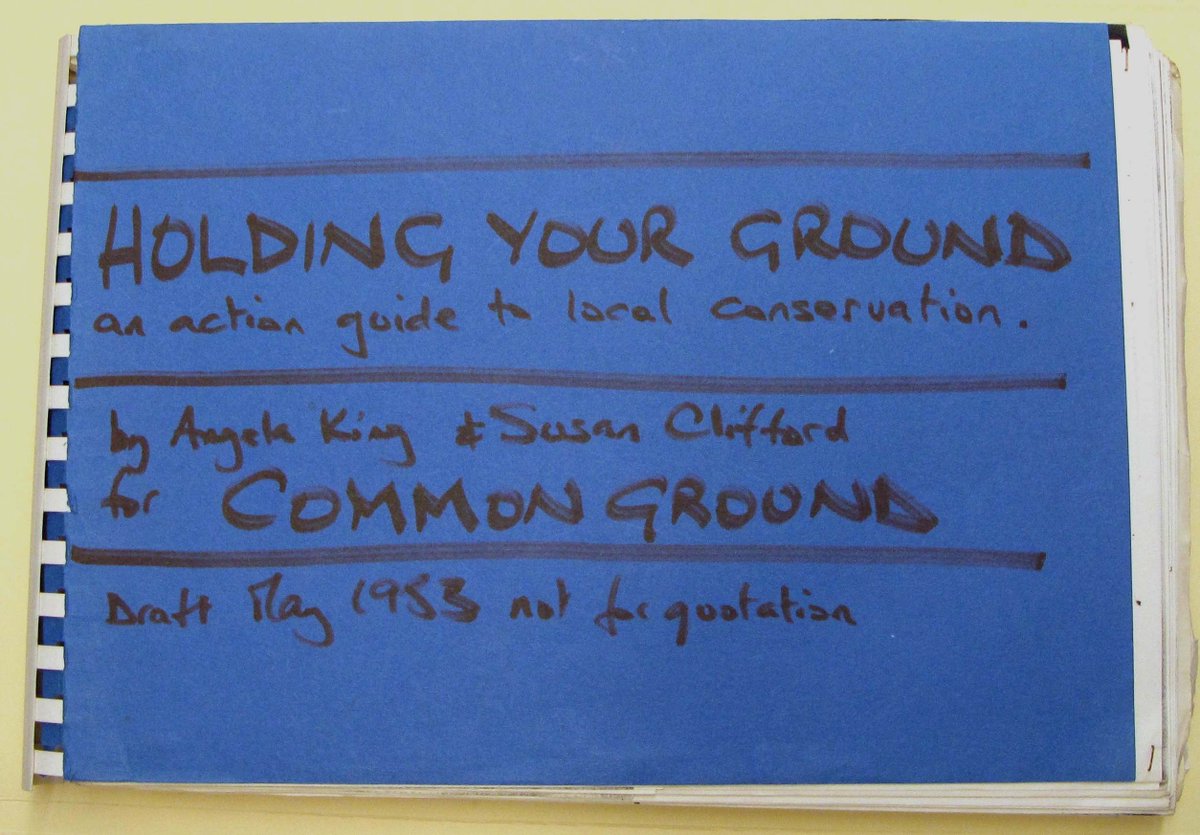 HOLDING YOUR GROUND
an action guide to local conservation.
by Angela King & Susan Clifford
for COMMON GROUND
Draft May 1983 not for quotation